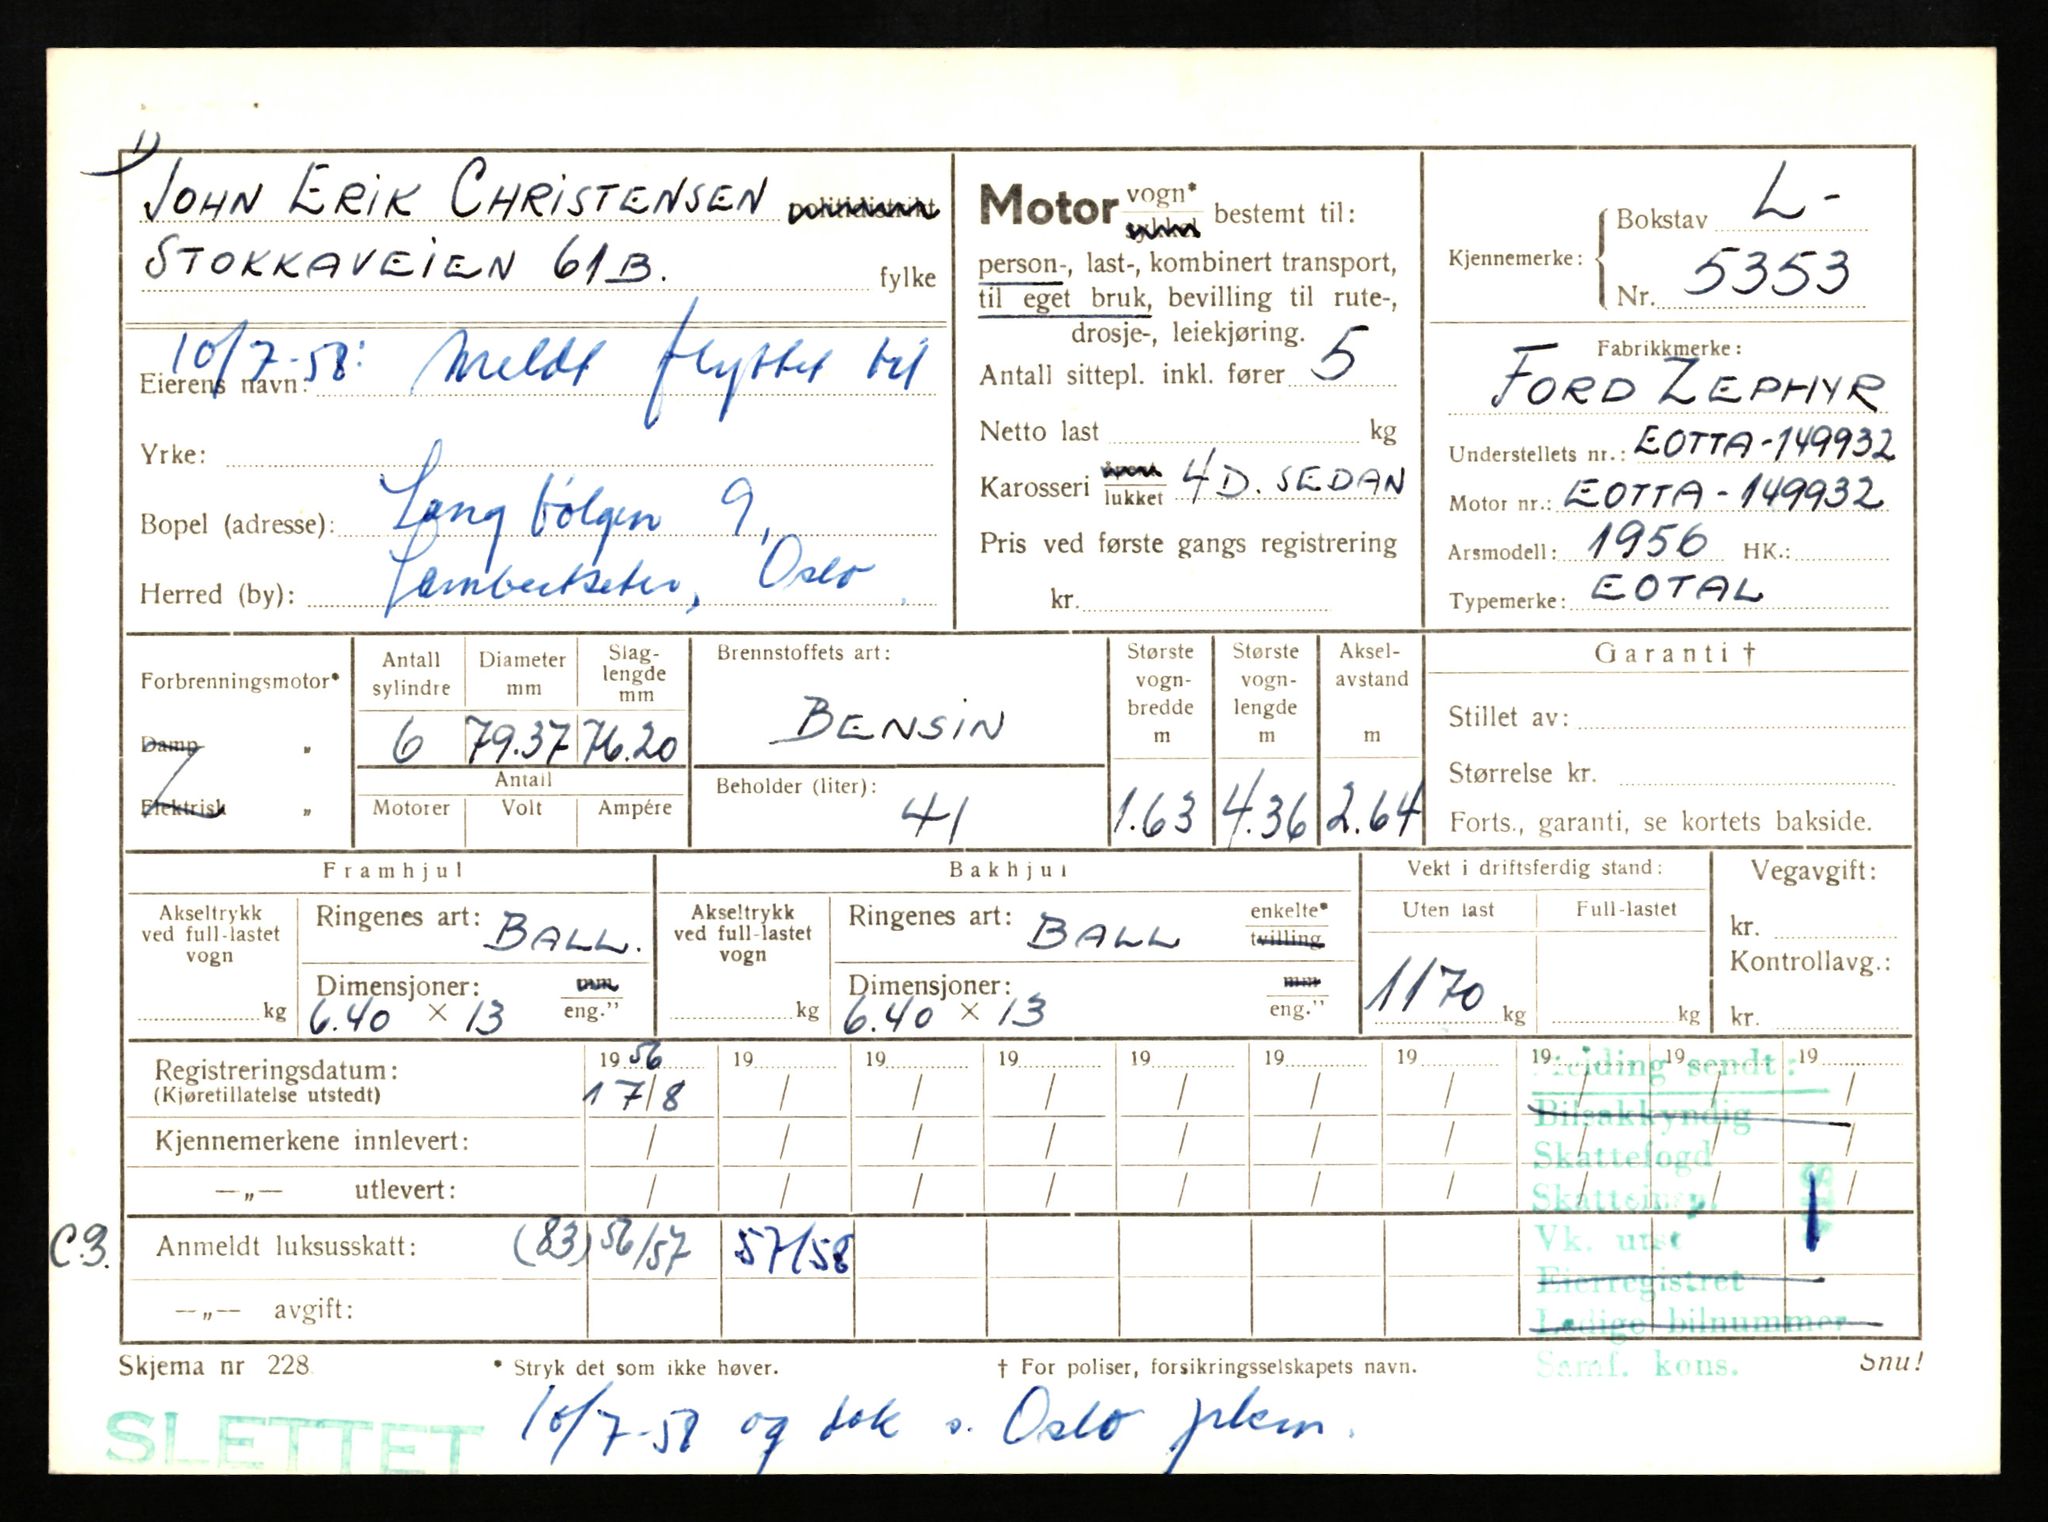 1)
JOHN ERIK CHRISTENSEN politidistrikt
STOKKAVEIEN 61B. fylke
10/7-58: Meldt flyttet til
Eierens navn:
Yrke:
Bopel (adresse): Langbølgen 9,
Herred (by): Lambertseter, Oslo.
Motor vogn* sykkel bestemt til:
person-, last-, kombinert transport,
til eget bruk, bevilling til rute-,
drosje-, leiekjøring.
Antall sittepl. inkl. fører 5
Netto last kg
Karosseri åpent lukket 4D. SEDAN
Pris ved første gangs registrering
kr.
Kjennemerke: Bokstav L-
Nr. 5353
Fabrikkmerke:
FORD ZEPHYR
Understellets nr.: EOTTA-149932
Motor nr.: EOTTA-149932
Årsmodell: 1956 HK.:
Typemerke: EOTAL
Forbrenningsmotor*
Damp "
Elektrisk "
Antall sylindre Diameter mm Slaglengde mm
6 79.37 76.20
Antall
Motorer Volt Ampére
Brennstoffets art:
BENSIN
Beholder (liter):
41
Største vogn-bredde m Største vogn-lengde m Aksel-avstand m
1.63 4.36 2.64
Garanti †
Stillet av:
Størrelse kr.
Forts., garanti, se kortets bakside.
Framhjul
Akseltrykk ved full-lastet vogn
kg
Ringenes art: BALL.
Dimensjoner: mm eng."
6.40 × 13
Bakhjul
Akseltrykk ved full-lastet vogn
kg
Ringenes art: BALL enkelte* tvilling
Dimensjoner: mm eng."
6.40 × 13
Vekt i driftsferdig stand:
Uten last Full-lastet
1170 kg kg
Vegavgift:
kr.
Kontrollavg.:
kr.
Registreringsdatum: 19 56 19 19 19 19 19 19 19 19 19
(Kjøretillatelse utstedt) 17/8 / / / / / / / / /
Kjennemerkene innlevert: / / / / / / / / / /
—„— utlevert: / / / / / / / / / /
C.3. Anmeldt luksusskatt: (83) 56/57 57/58
—„— avgift:
Melding sendt:
Bilsakkyndig
Skattefogd
Skatteinsp.
Vk. utst
Eierregistret
Ledige bilnummer
Samf. kons.
Skjema nr 228. * Stryk det som ikke høver. † For poliser, forsikringsselskapets navn. Snu!
SLETTET 10/7-58 og tok s. Oslo